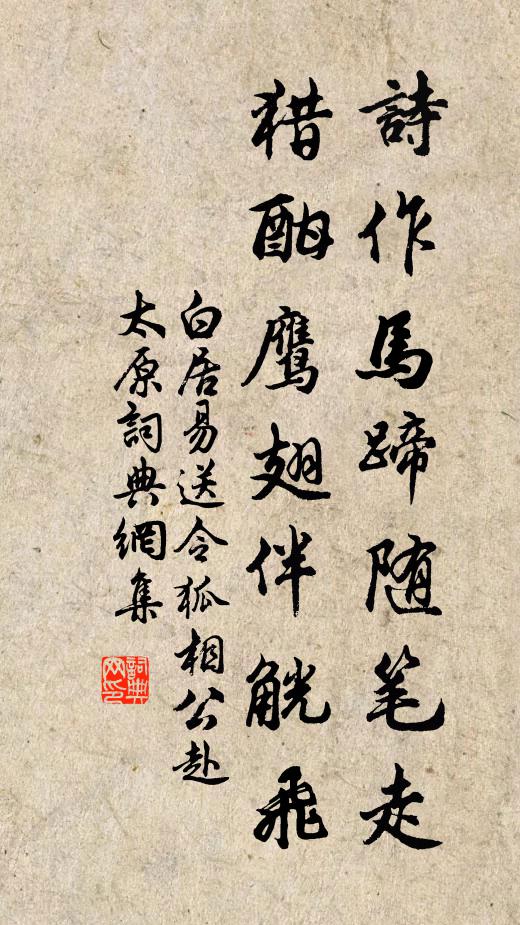 詩作馬蹄随笔走
猎酣鹰翅伴觥飛
白居易送令狐相公赴
太原詞典網集
詞典
网印